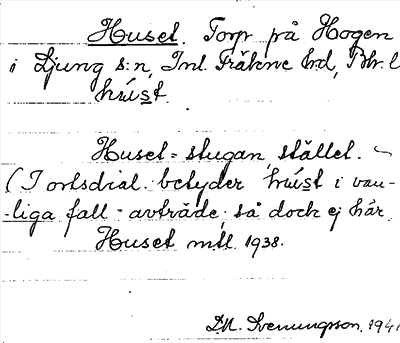 Huset. Torp på Hogen
i Ljung s:n, Inl. Fräkne hd, Bhl.
hús̱t.
Huset = stugan, stället.
(I ortsdial. betyder hús̱t i van-
-liga fall = avträde, så dock ej här.
Huset mtl. 1938.
D.A. Svenungsson, 1941